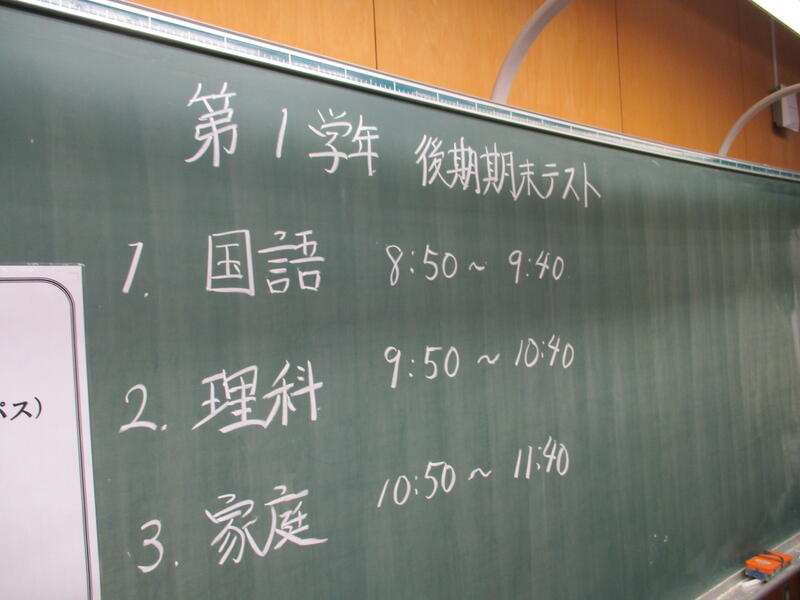 第1学年 後期期末テスト
1. 国語 8:50～9:40
2. 理科 9:50～10:40
3. 家庭 10:50～11:40
パス）